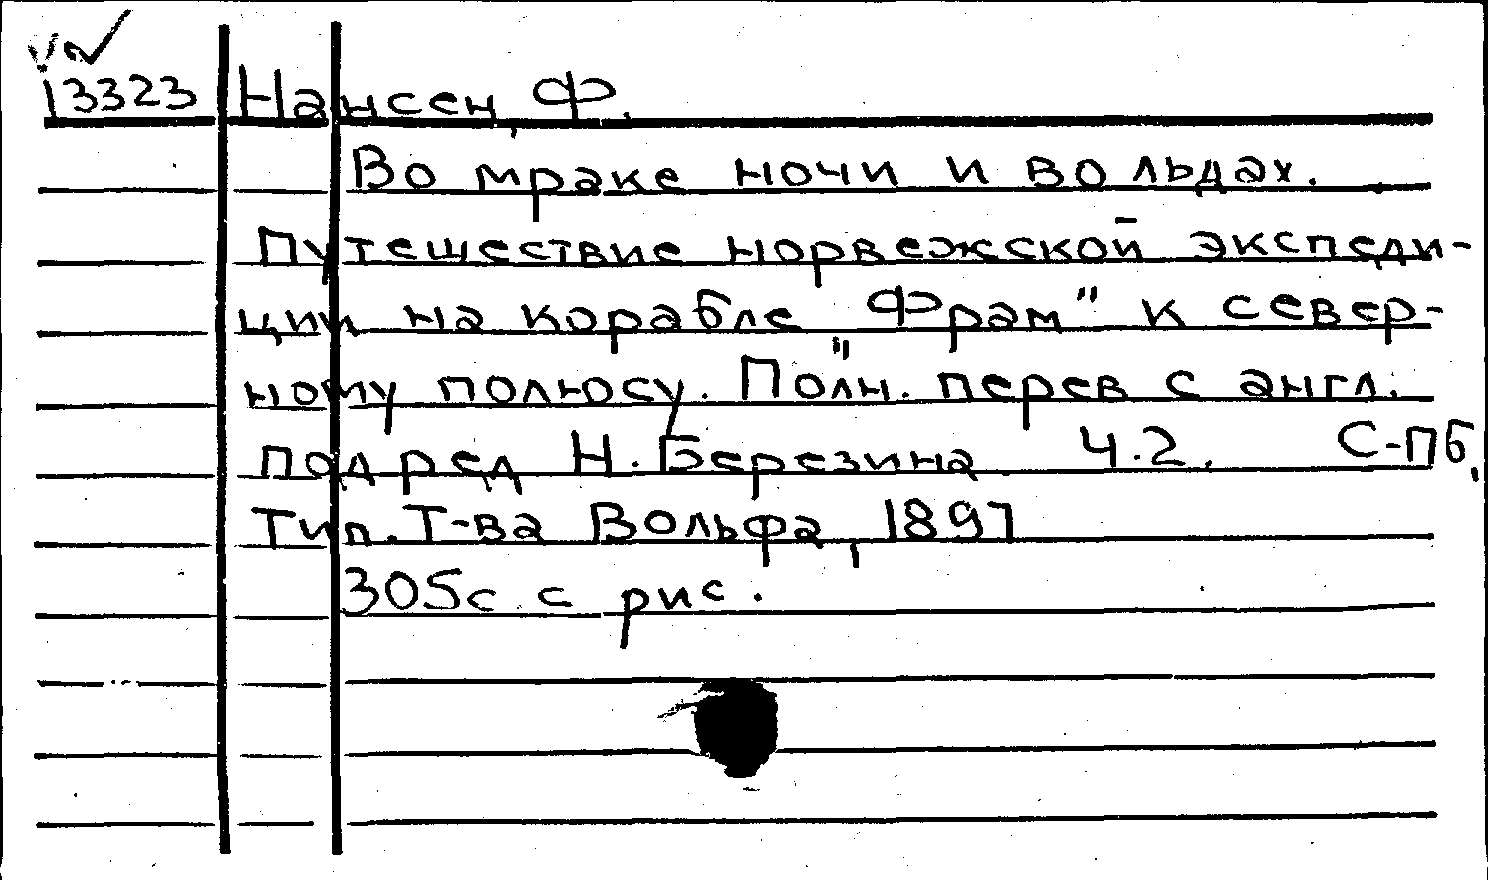 13323 Нансен, Ф.
Во мраке ночи и во льдах.
Путешествие норвежской экспеди-
ции на корабле "Фрам" к север-
ному полюсу. Полн. перев с англ.
под ред Н. Березина Ч.2. С-Пб,
Тип. Т-ва Вольфа, 1897
305с с рис.